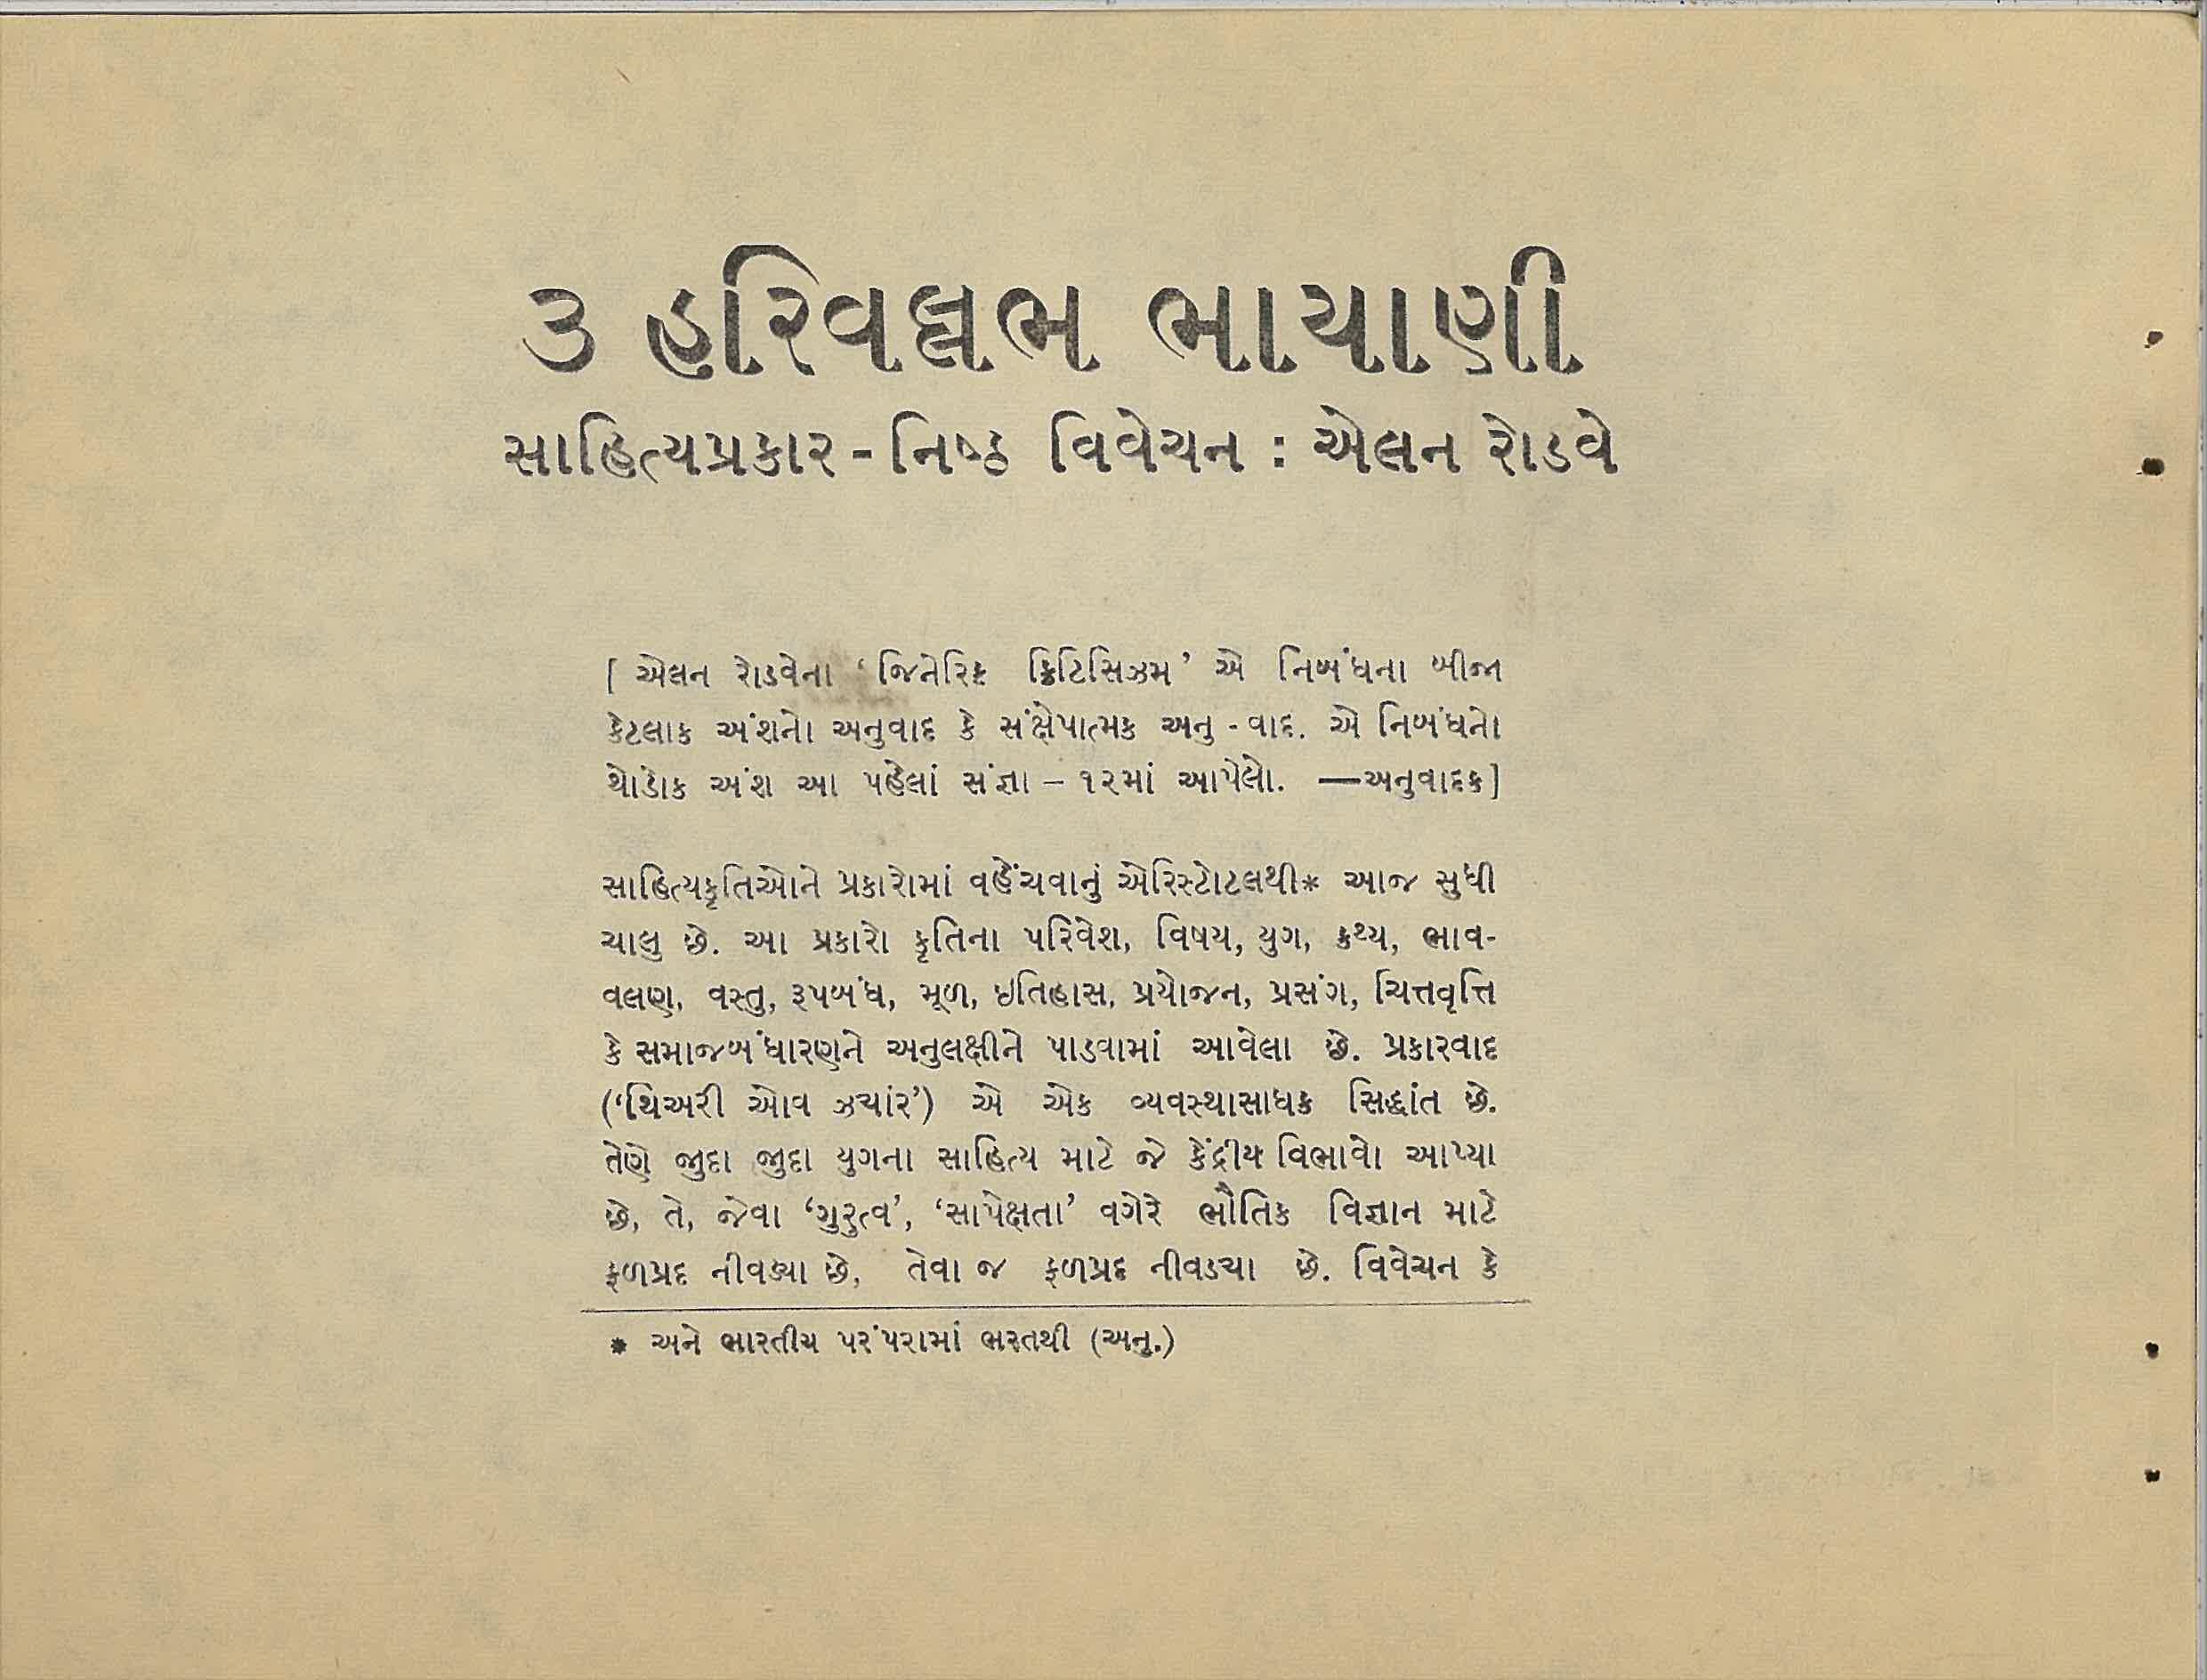 ૩ હરિવલ્લભ ભાયાણી
સાહિત્યપ્રકાર - નિષ્ઠ વિવેચન : એલન રોડવે
[ એલન રોડવેના ‘ જિનેરિક ક્રિટિસિઝમ ’ એ નિબંધના બીજા
કેટલાક અંશનો અનુવાદ કે સંક્ષેપાત્મક અનુ - વાદ. એ નિબંધનો
થોડોક અંશ આ પહેલાં સંજ્ઞા – ૧૨માં આપેલો. —અનુવાદક]
સાહિત્યકૃતિઓને પ્રકારોમાં વહેંચવાનું એરિસ્ટોટલથી* આજ સુધી
ચાલુ છે. આ પ્રકારો કૃતિના પરિવેશ, વિષય, યુગ, કથ્ય, ભાવ-
વલણ, વસ્તુ, રૂપબંધ, મૂળ, ઇતિહાસ, પ્રયોજન, પ્રસંગ, ચિત્તવૃત્તિ
કે સમાજબંધારણને અનુલક્ષીને પાડવામાં આવેલા છે. પ્રકારવાદ
(‘થિઅરી ઓવ ઝ્યાંર’) એ એક વ્યવસ્થાસાધક સિદ્ધાંત છે.
તેણે જુદા જુદા યુગના સાહિત્ય માટે જે કેંદ્રીય વિભાવો આપ્યા
છે, તે, જેવા ‘ગુરુત્વ’, ‘સાપેક્ષતા’ વગેરે ભૌતિક વિજ્ઞાન માટે
ફળપ્રદ નીવડ્યા છે, તેવા જ ફળપ્રદ નીવડ્યા છે. વિવેચન કે
* અને ભારતીય પરંપરામાં ભરતથી (અનુ.)